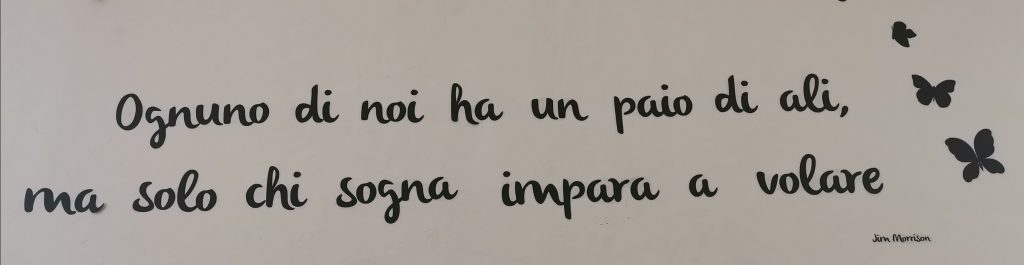 Ognuno di noi ha un paio di ali,
ma solo chi sogna impara a volare
Jim Morrison